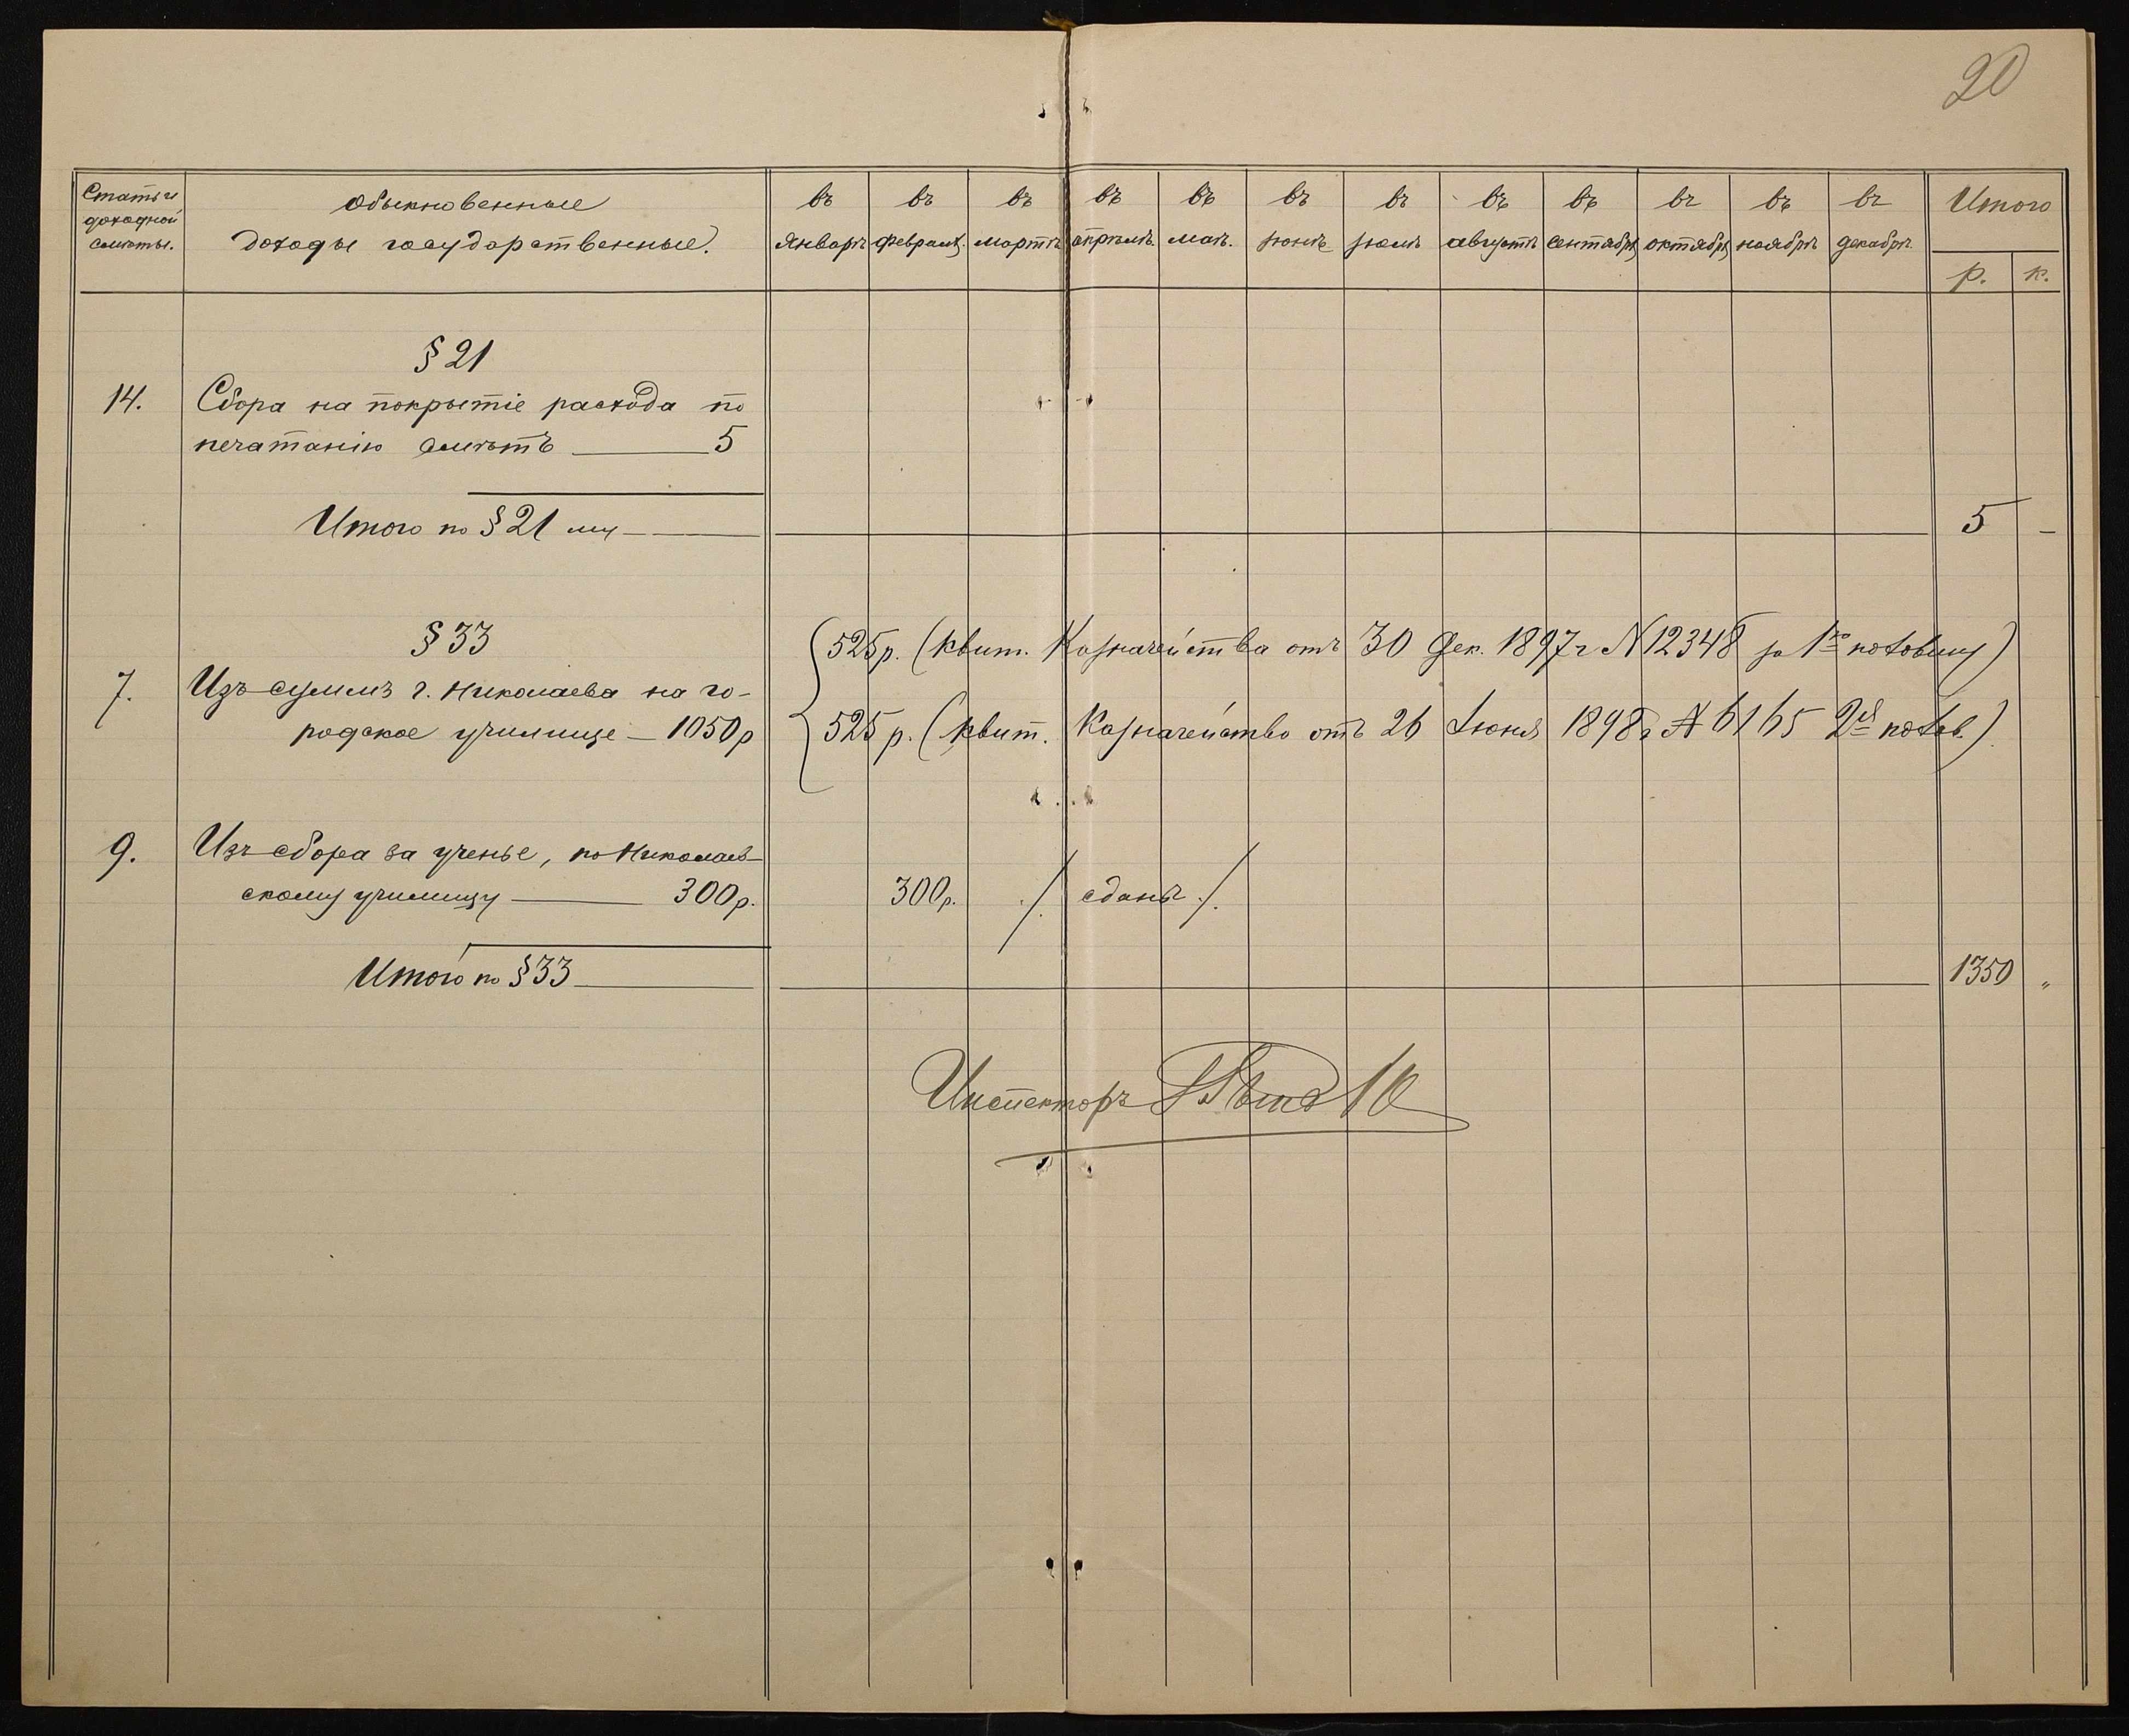 20
Статьи
доходной
смѣты.
Обыкновенные
доходы государственные.
въ
Январѣ
въ
февралѣ
въ
мартѣ
въ
апрѣлѣ
въ
маѣ.
въ
іюнѣ
въ
іюлѣ
въ
августѣ
въ
сентябрѣ
въ
октябрѣ
въ
ноябрѣ
въ
декабрѣ
Итого
р. к.
§ 21
14. Сбора на покрытіе расхода по
печатанію смѣтъ — 5
Итого по § 21 му — 5 —
§ 33
7. Изъ суммъ г. Николаева на го-
родское училище — 1050 р
525 р. (квит. Казначейства отъ 30 Дек. 1897 г N 12348 за 1ю половину)
525 р. (квит. Казначейство отъ 26 Іюня 1898 г № 6165 2ая полов.)
9. Изъ сбора за ученье, по Николаев-
скому училищу — 300 р.
300 р. /. сданы /.
Итого по § 33 — 1350 "
Инспекторъ